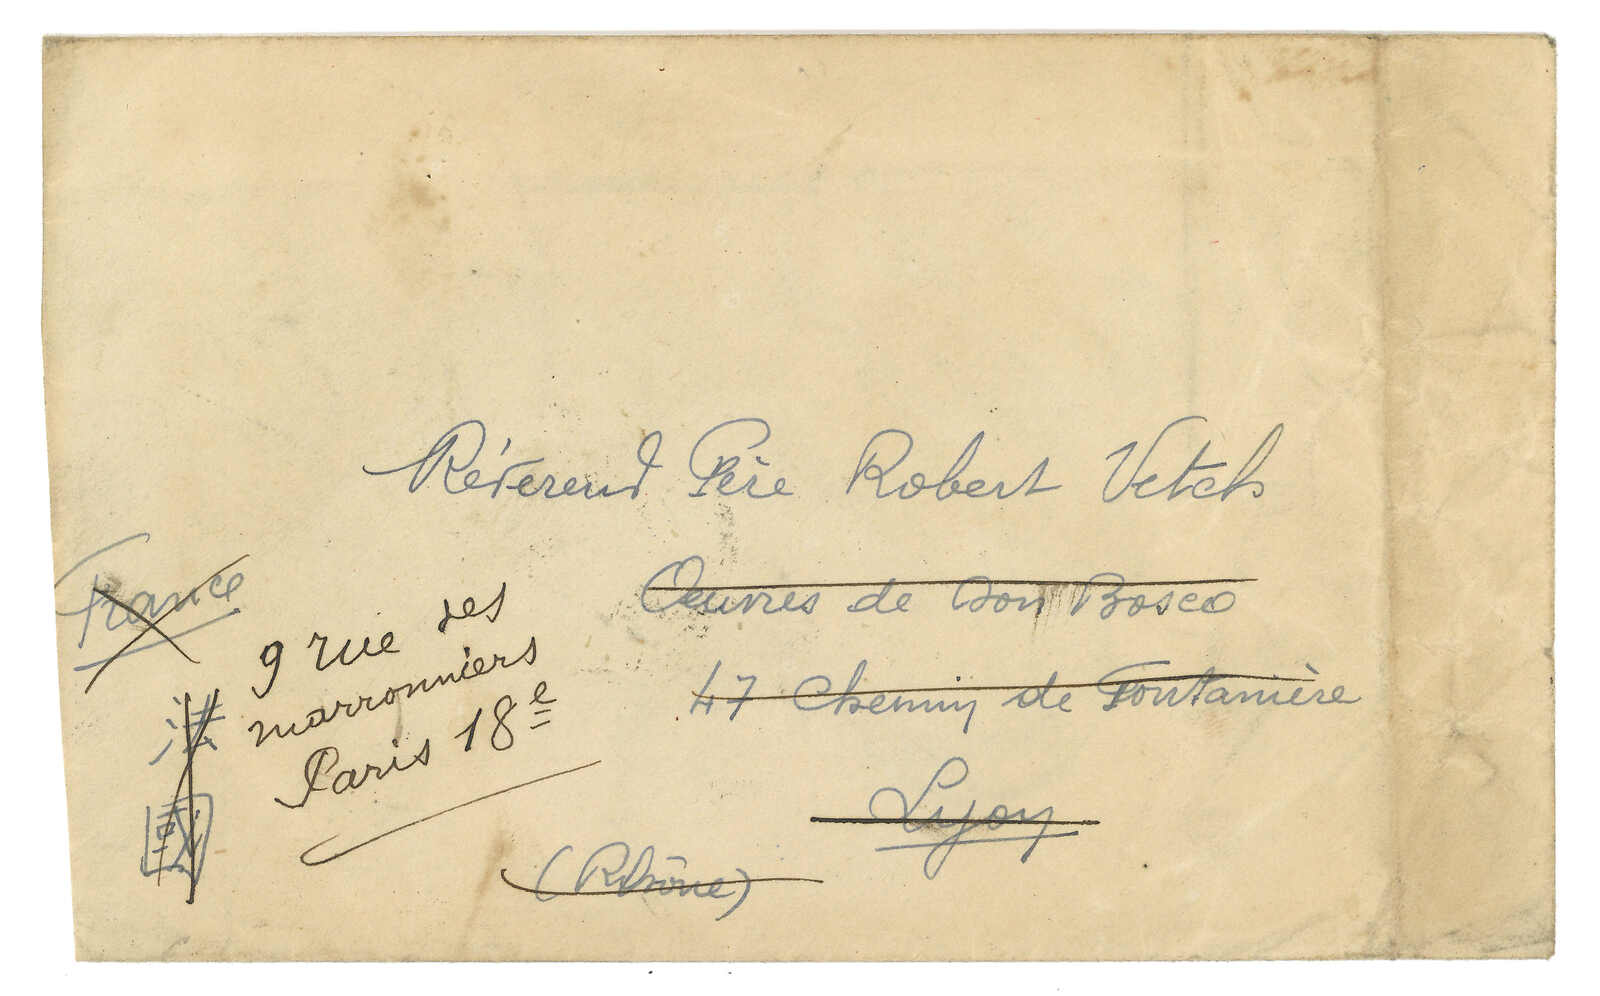 Révérend Père Robert Vetch
Œuvres de Don Bosco
47 Chemin de Fontanière
Lyon
(Rhône)
France
法
國
9 rue des
marronniers
Paris 18e